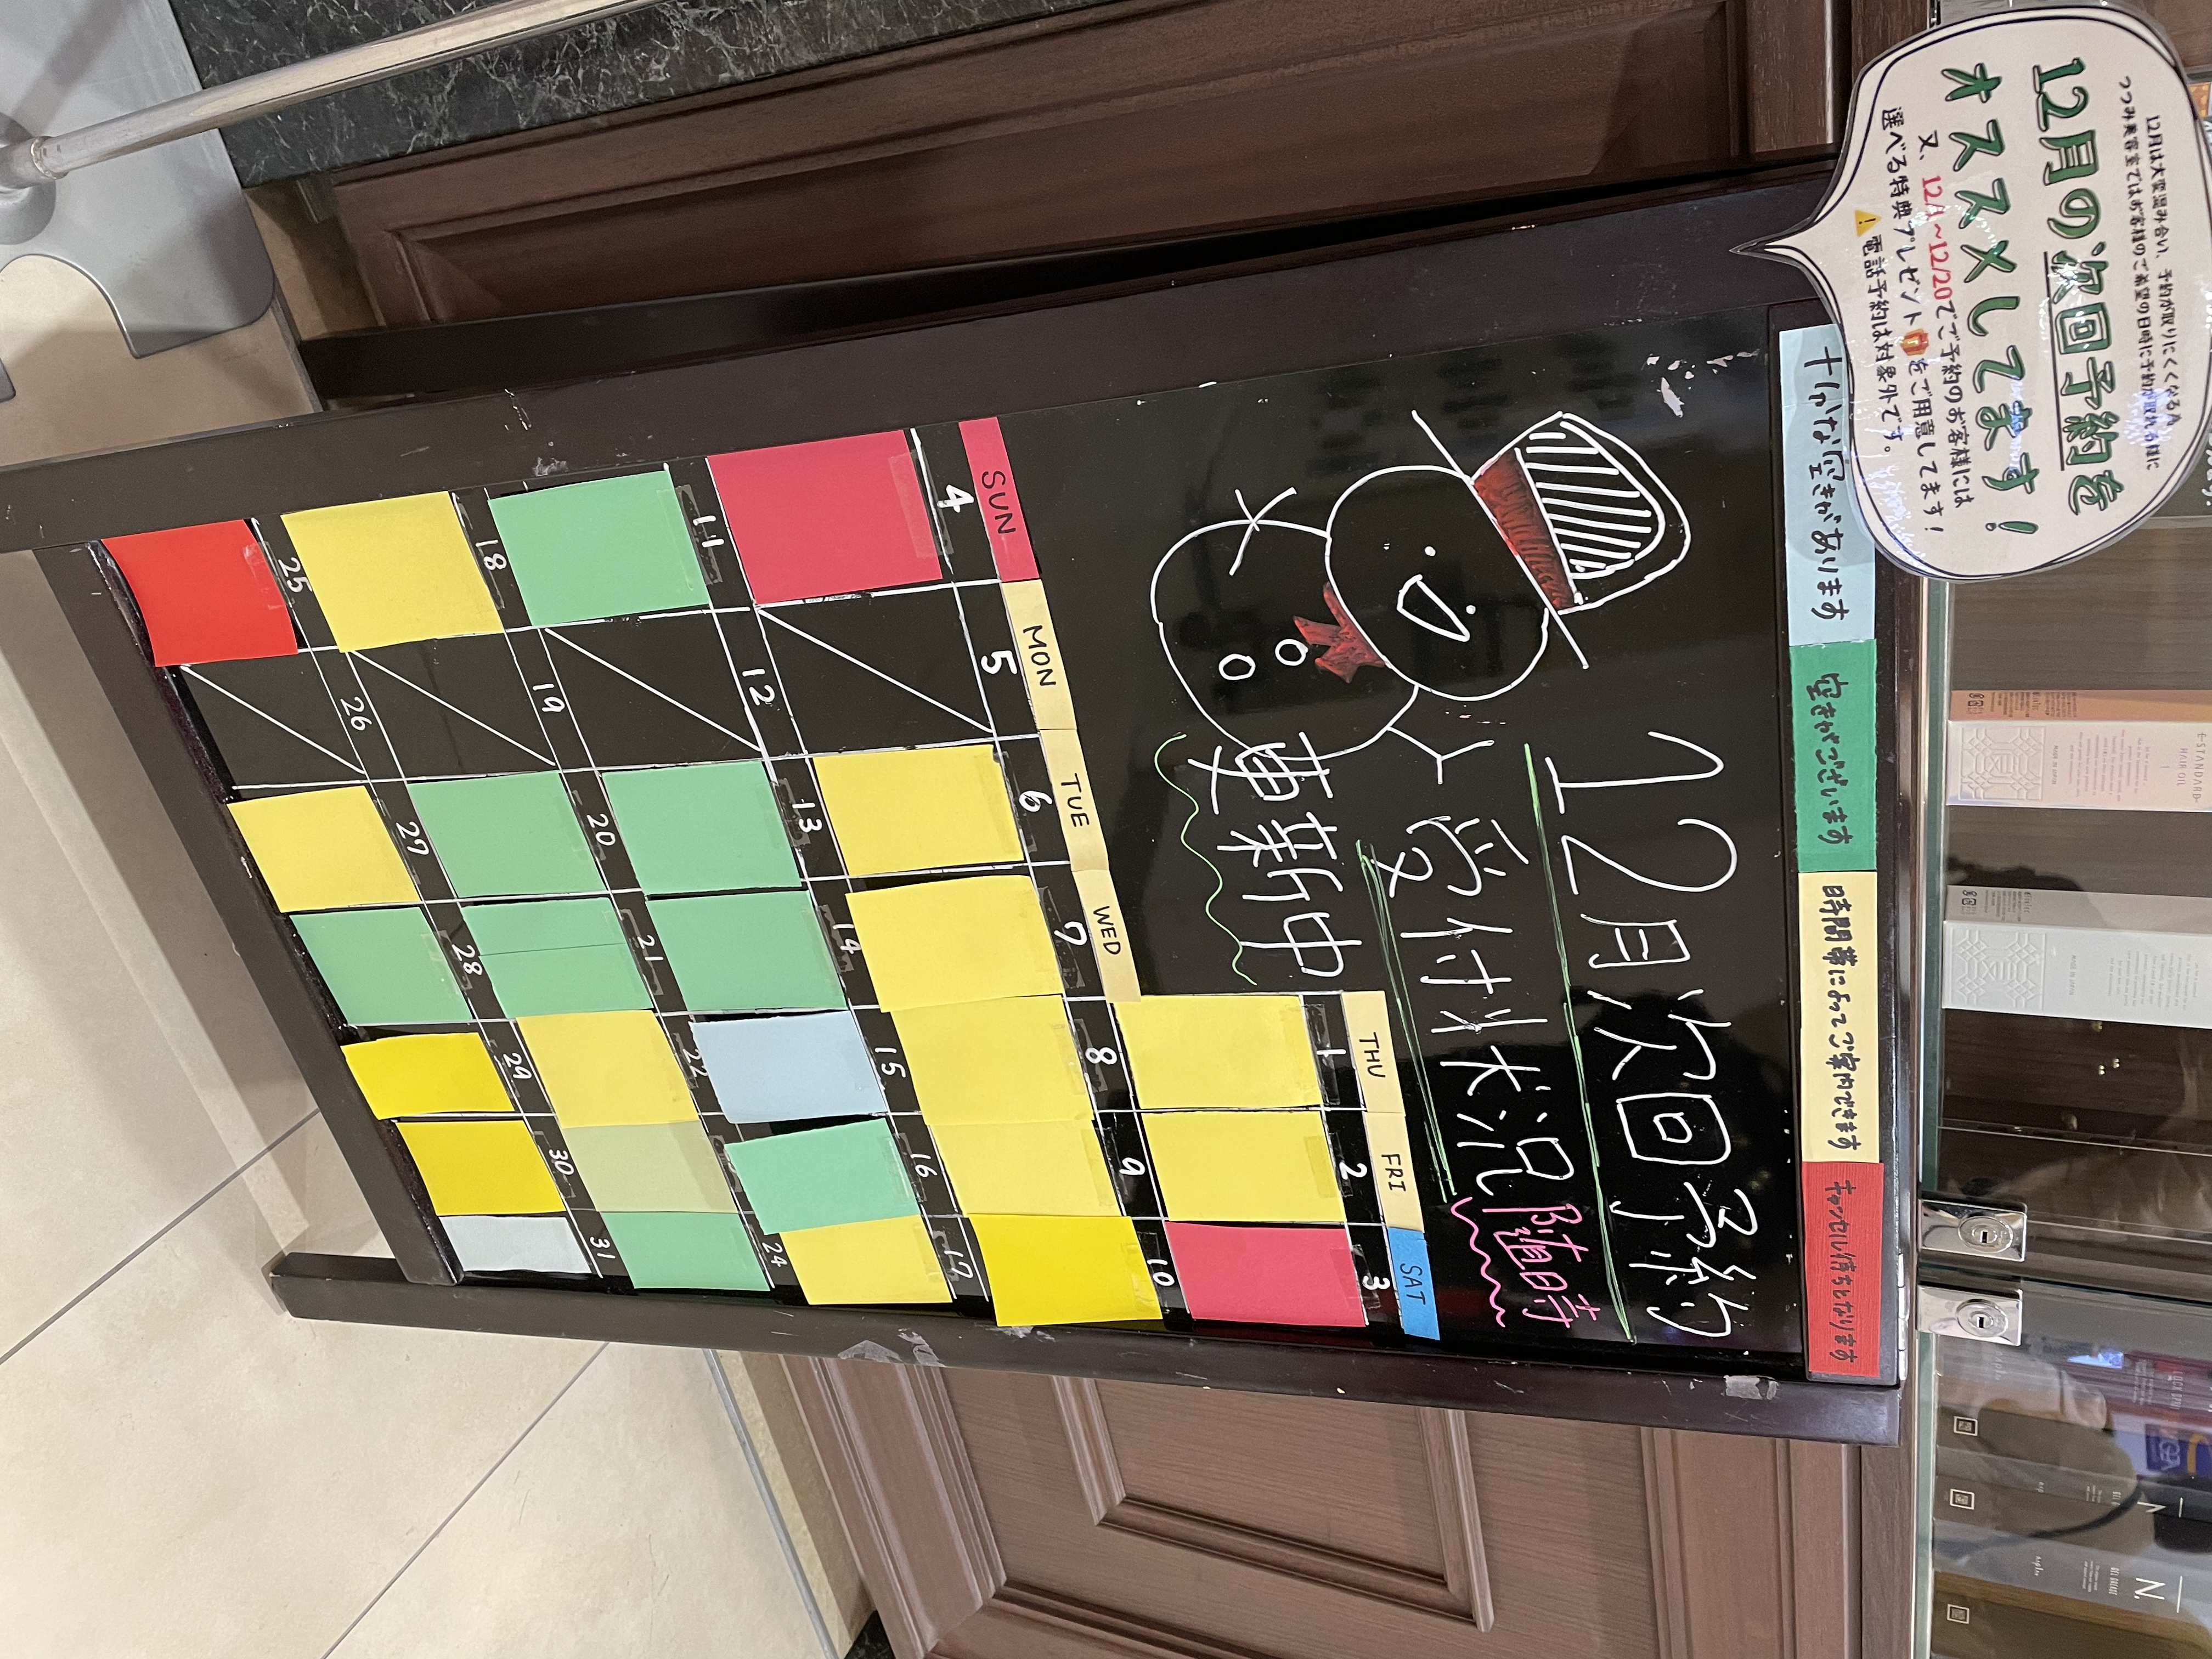 12月は大変混み合い、予約が取りにくくなる為
つつみ美容室ではお客様のご希望の日時に予約が取れる様に
12月の次回予約を
オススメしてます！
又、12/1～12/20でご予約のお客様には
選べる特典プレゼントをご用意してます！
電話予約は対象外です。
十分な空きがあります
空きがございます
時間帯によってご案内できます
キャンセル待ちとなります
12月次回予約
受付状況随時
更新中
THU FRI SAT
1 2 3
SUN MON TUE WED
4 5 6 7 8 9 10
11 12 13 14 15 16 17
18 19 20 21 22 24
25 26 27 28 29 30 31
E-STANDARD
HAIR OIL
N.
N.